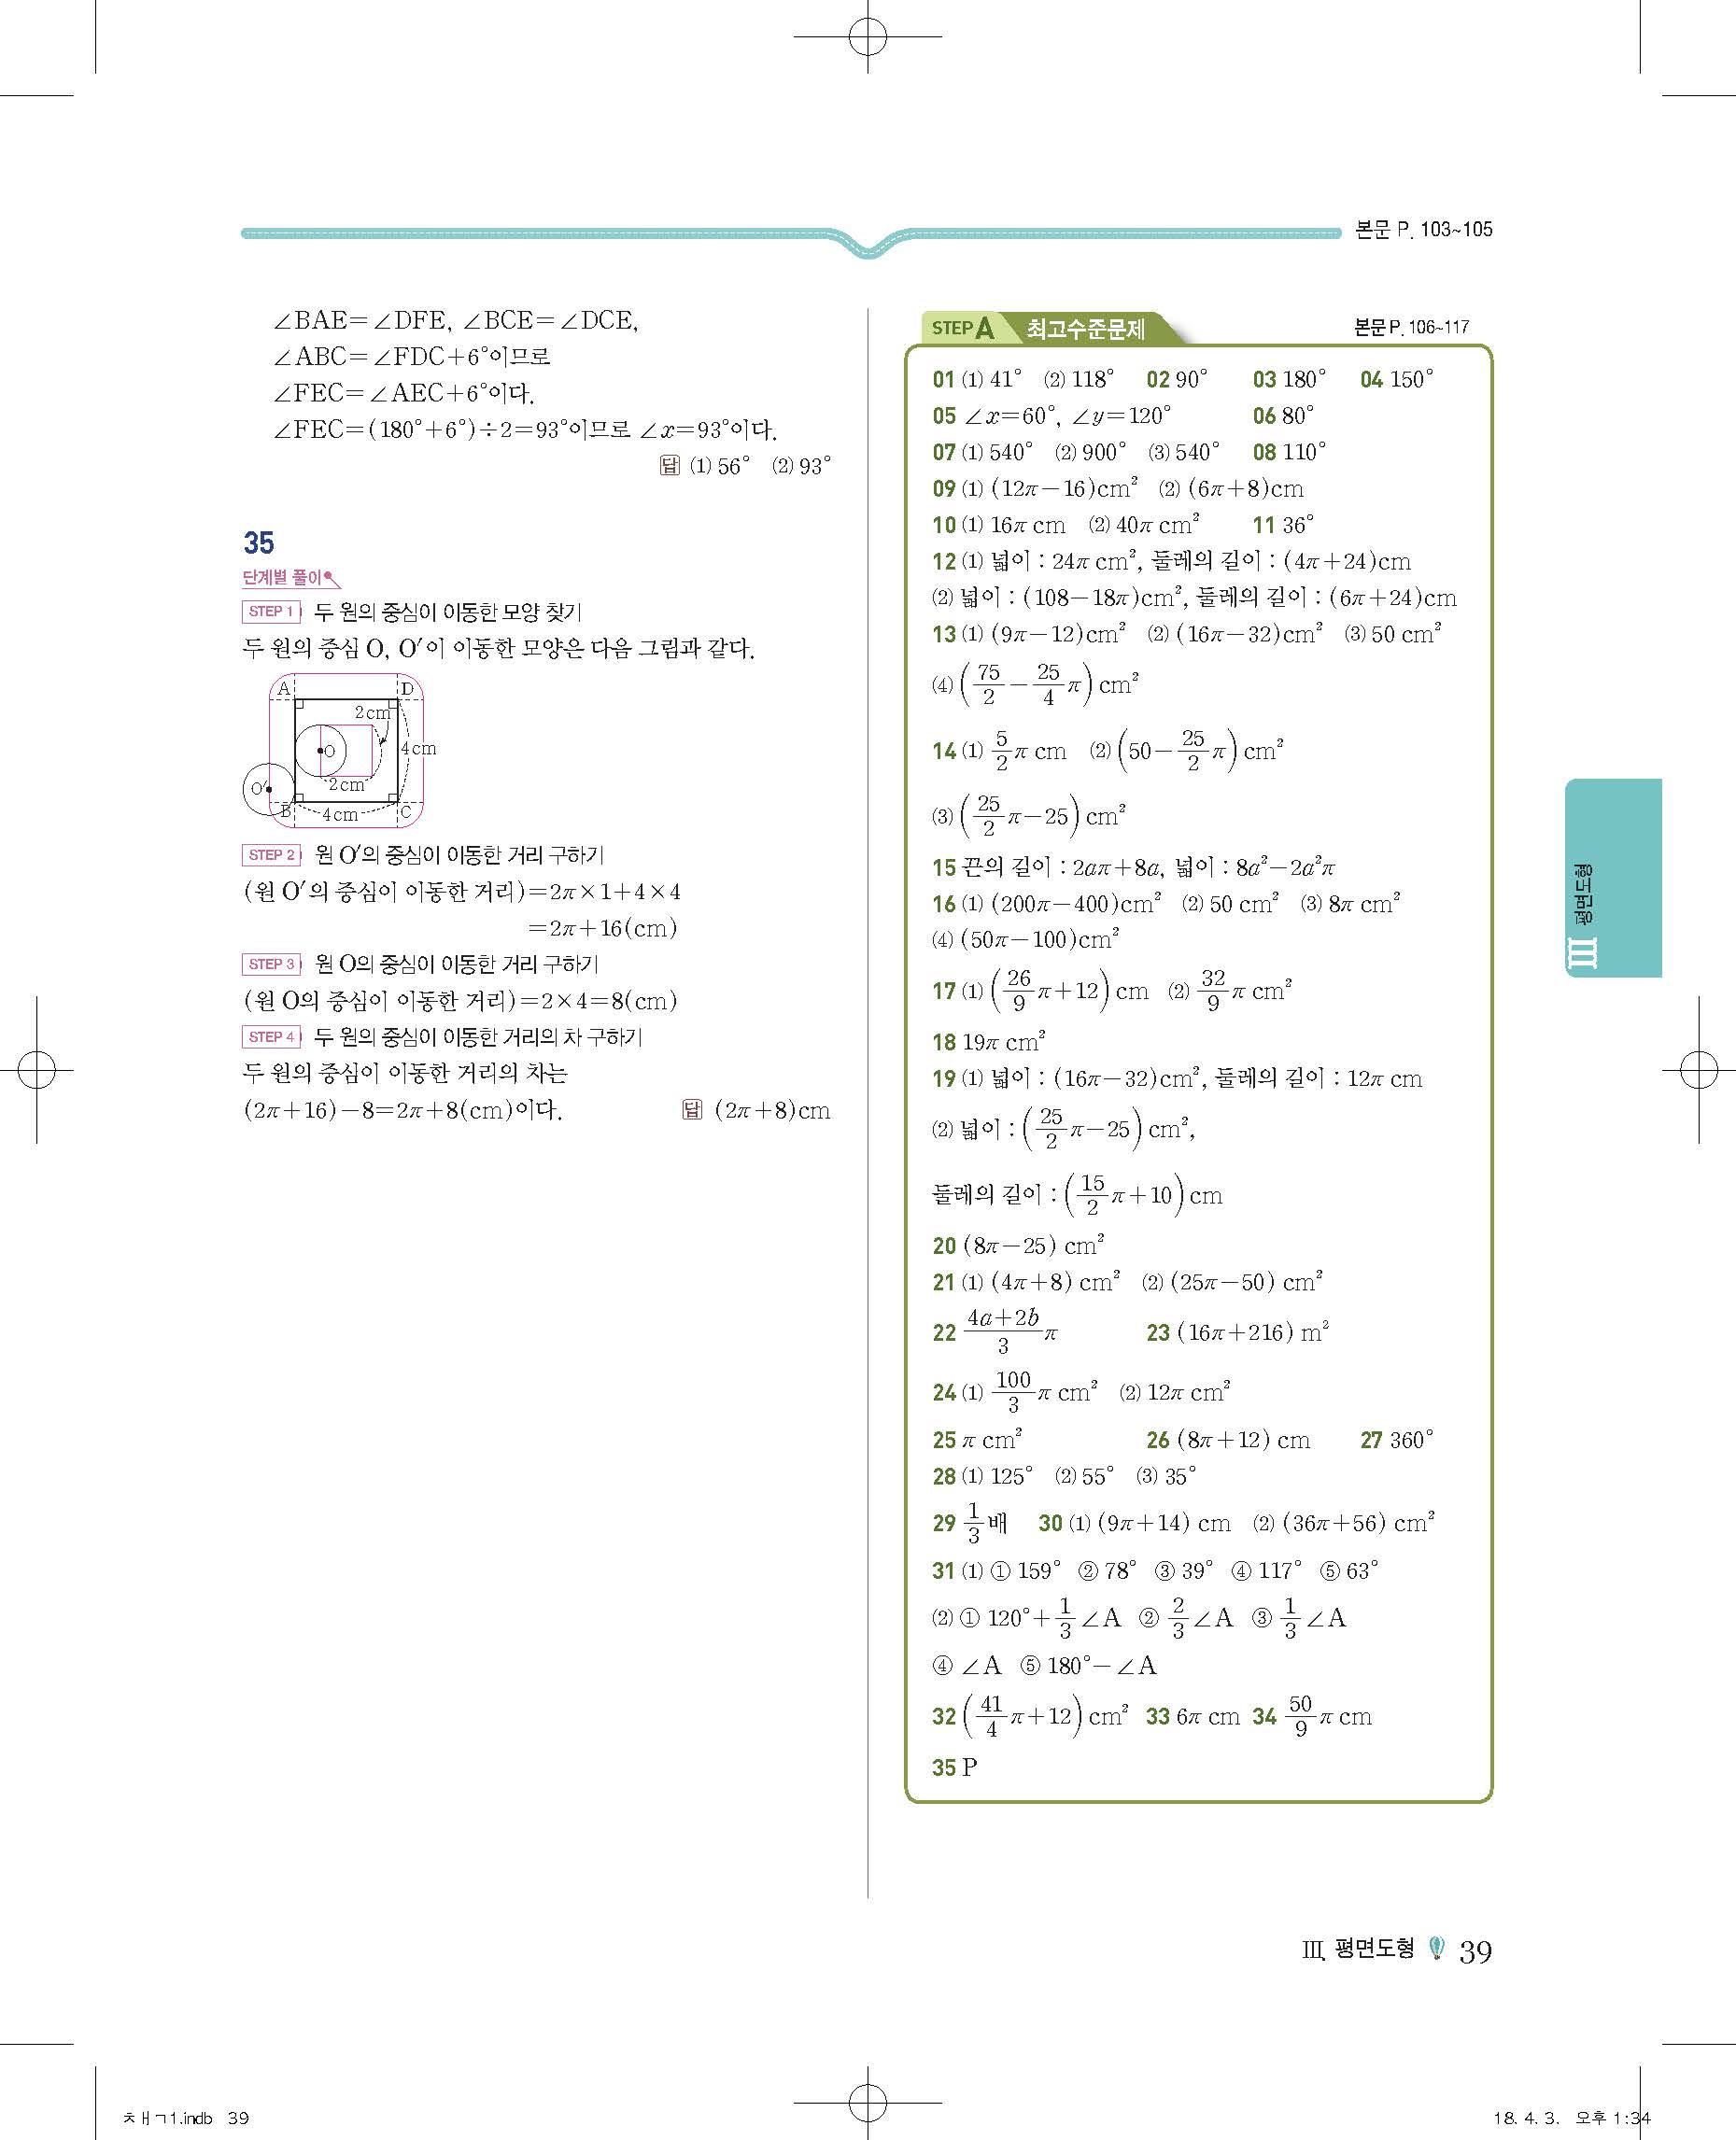 본문 P. 103~105
∠BAE=∠DFE, ∠BCE=∠DCE,
∠ABC=∠FDC+6°이므로
∠FEC=∠AEC+6°이다.
∠FEC=(180°+6°)÷2=93°이므로 ∠x=93°이다.
답 ⑴ 56° ⑵ 93°
35
단계별 풀이
STEP 1 두 원의 중심이 이동한 모양 찾기
두 원의 중심 O, O′이 이동한 모양은 다음 그림과 같다.
A D
2cm
O 4cm
O′ 2cm
B 4cm C
STEP 2 원 O′의 중심이 이동한 거리 구하기
(원 O′의 중심이 이동한 거리)=2π×1+4×4
=2π+16(cm)
STEP 3 원 O의 중심이 이동한 거리 구하기
(원 O의 중심이 이동한 거리)=2×4=8(cm)
STEP 4 두 원의 중심이 이동한 거리의 차 구하기
두 원의 중심이 이동한 거리의 차는
(2π+16)-8=2π+8(cm)이다. 답 (2π+8)cm
STEP A 최고수준문제 본문 P. 106~117
01 ⑴ 41° ⑵ 118° 02 90° 03 180° 04 150°
05 ∠x=60°, ∠y=120° 06 80°
07 ⑴ 540° ⑵ 900° ⑶ 540° 08 110°
09 ⑴ (12π-16)cm² ⑵ (6π+8)cm
10 ⑴ 16π cm ⑵ 40π cm² 11 36°
12 ⑴ 넓이 : 24π cm², 둘레의 길이 : (4π+24)cm
⑵ 넓이 : (108-18π)cm², 둘레의 길이 : (6π+24)cm
13 ⑴ (9π-12)cm² ⑵ (16π-32)cm² ⑶ 50 cm²
⑷ (75/2-25/4π)cm²
14 ⑴ 5/2π cm ⑵ (50-25/2π)cm²
⑶ (25/2π-25)cm²
15 끈의 길이 : 2aπ+8a, 넓이 : 8a²-2a²π
16 ⑴ (200π-400)cm² ⑵ 50 cm² ⑶ 8π cm²
⑷ (50π-100)cm²
17 ⑴ (26/9π+12)cm ⑵ 32/9π cm²
18 19π cm²
19 ⑴ 넓이 : (16π-32)cm², 둘레의 길이 : 12π cm
⑵ 넓이 : (25/2π-25)cm²,
둘레의 길이 : (15/2π+10)cm
20 (8π-25) cm²
21 ⑴ (4π+8) cm² ⑵ (25π-50) cm²
22 4a+2b/3π 23 (16π+216) m²
24 ⑴ 100/3π cm² ⑵ 12π cm²
25 π cm² 26 (8π+12) cm 27 360°
28 ⑴ 125° ⑵ 55° ⑶ 35°
29 1/3배 30 ⑴ (9π+14) cm ⑵ (36π+56) cm²
31 ⑴ ① 159° ② 78° ③ 39° ④ 117° ⑤ 63°
⑵ ① 120°+1/3∠A ② 2/3∠A ③ 1/3∠A
④ ∠A ⑤ 180°-∠A
32 (41/4π+12)cm² 33 6π cm 34 50/9π cm
35 P
Ⅲ 평면도형
Ⅲ. 평면도형 39
ㅊㅐㄱ1.indb 39
18. 4. 3. 오후 1:34